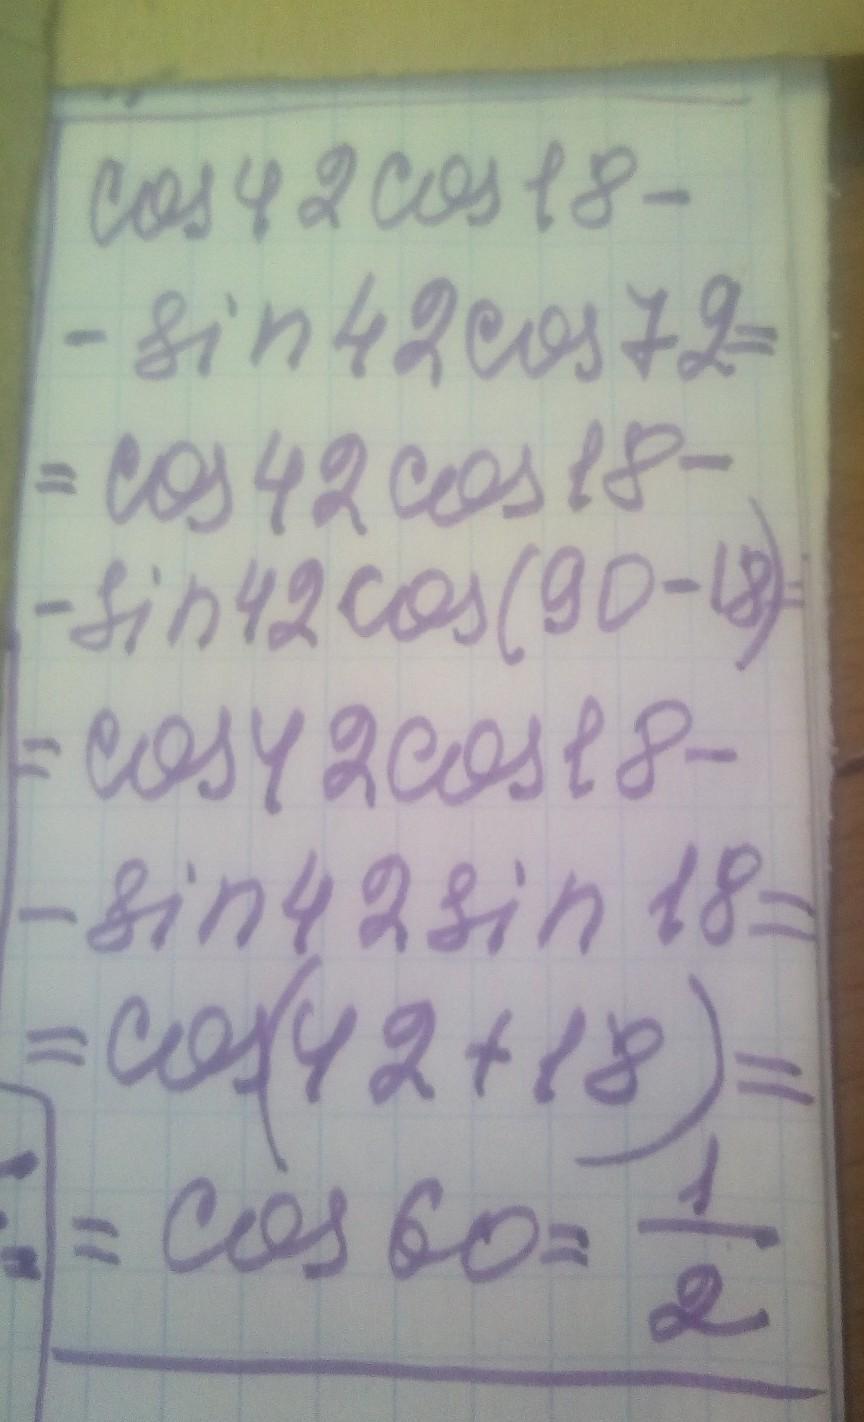 cos42cos18-
-sin42cos72=
=cos42cos18-
-sin42cos(90-18)=
=cos42cos18-
-sin42sin18=
=cos(42+18)=
=cos60=1/2